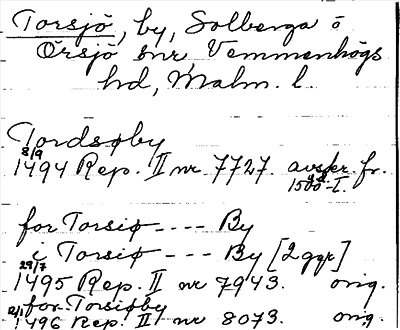 Torsjö, by, Solberga o
Örsjö snr Vemmenhögs
hd, Malm. l.
Tordsøby
8/9
1494 Rep. II nr 7727. avskr. fr.
1500-t.
for Torsiø ---- By
i Torsiø ---- By [2 ggr]
29/7
1495 Rep. II nr 7943. orig.
for Torsiøby
2/1
1496 Rep. II nr 8073. orig.